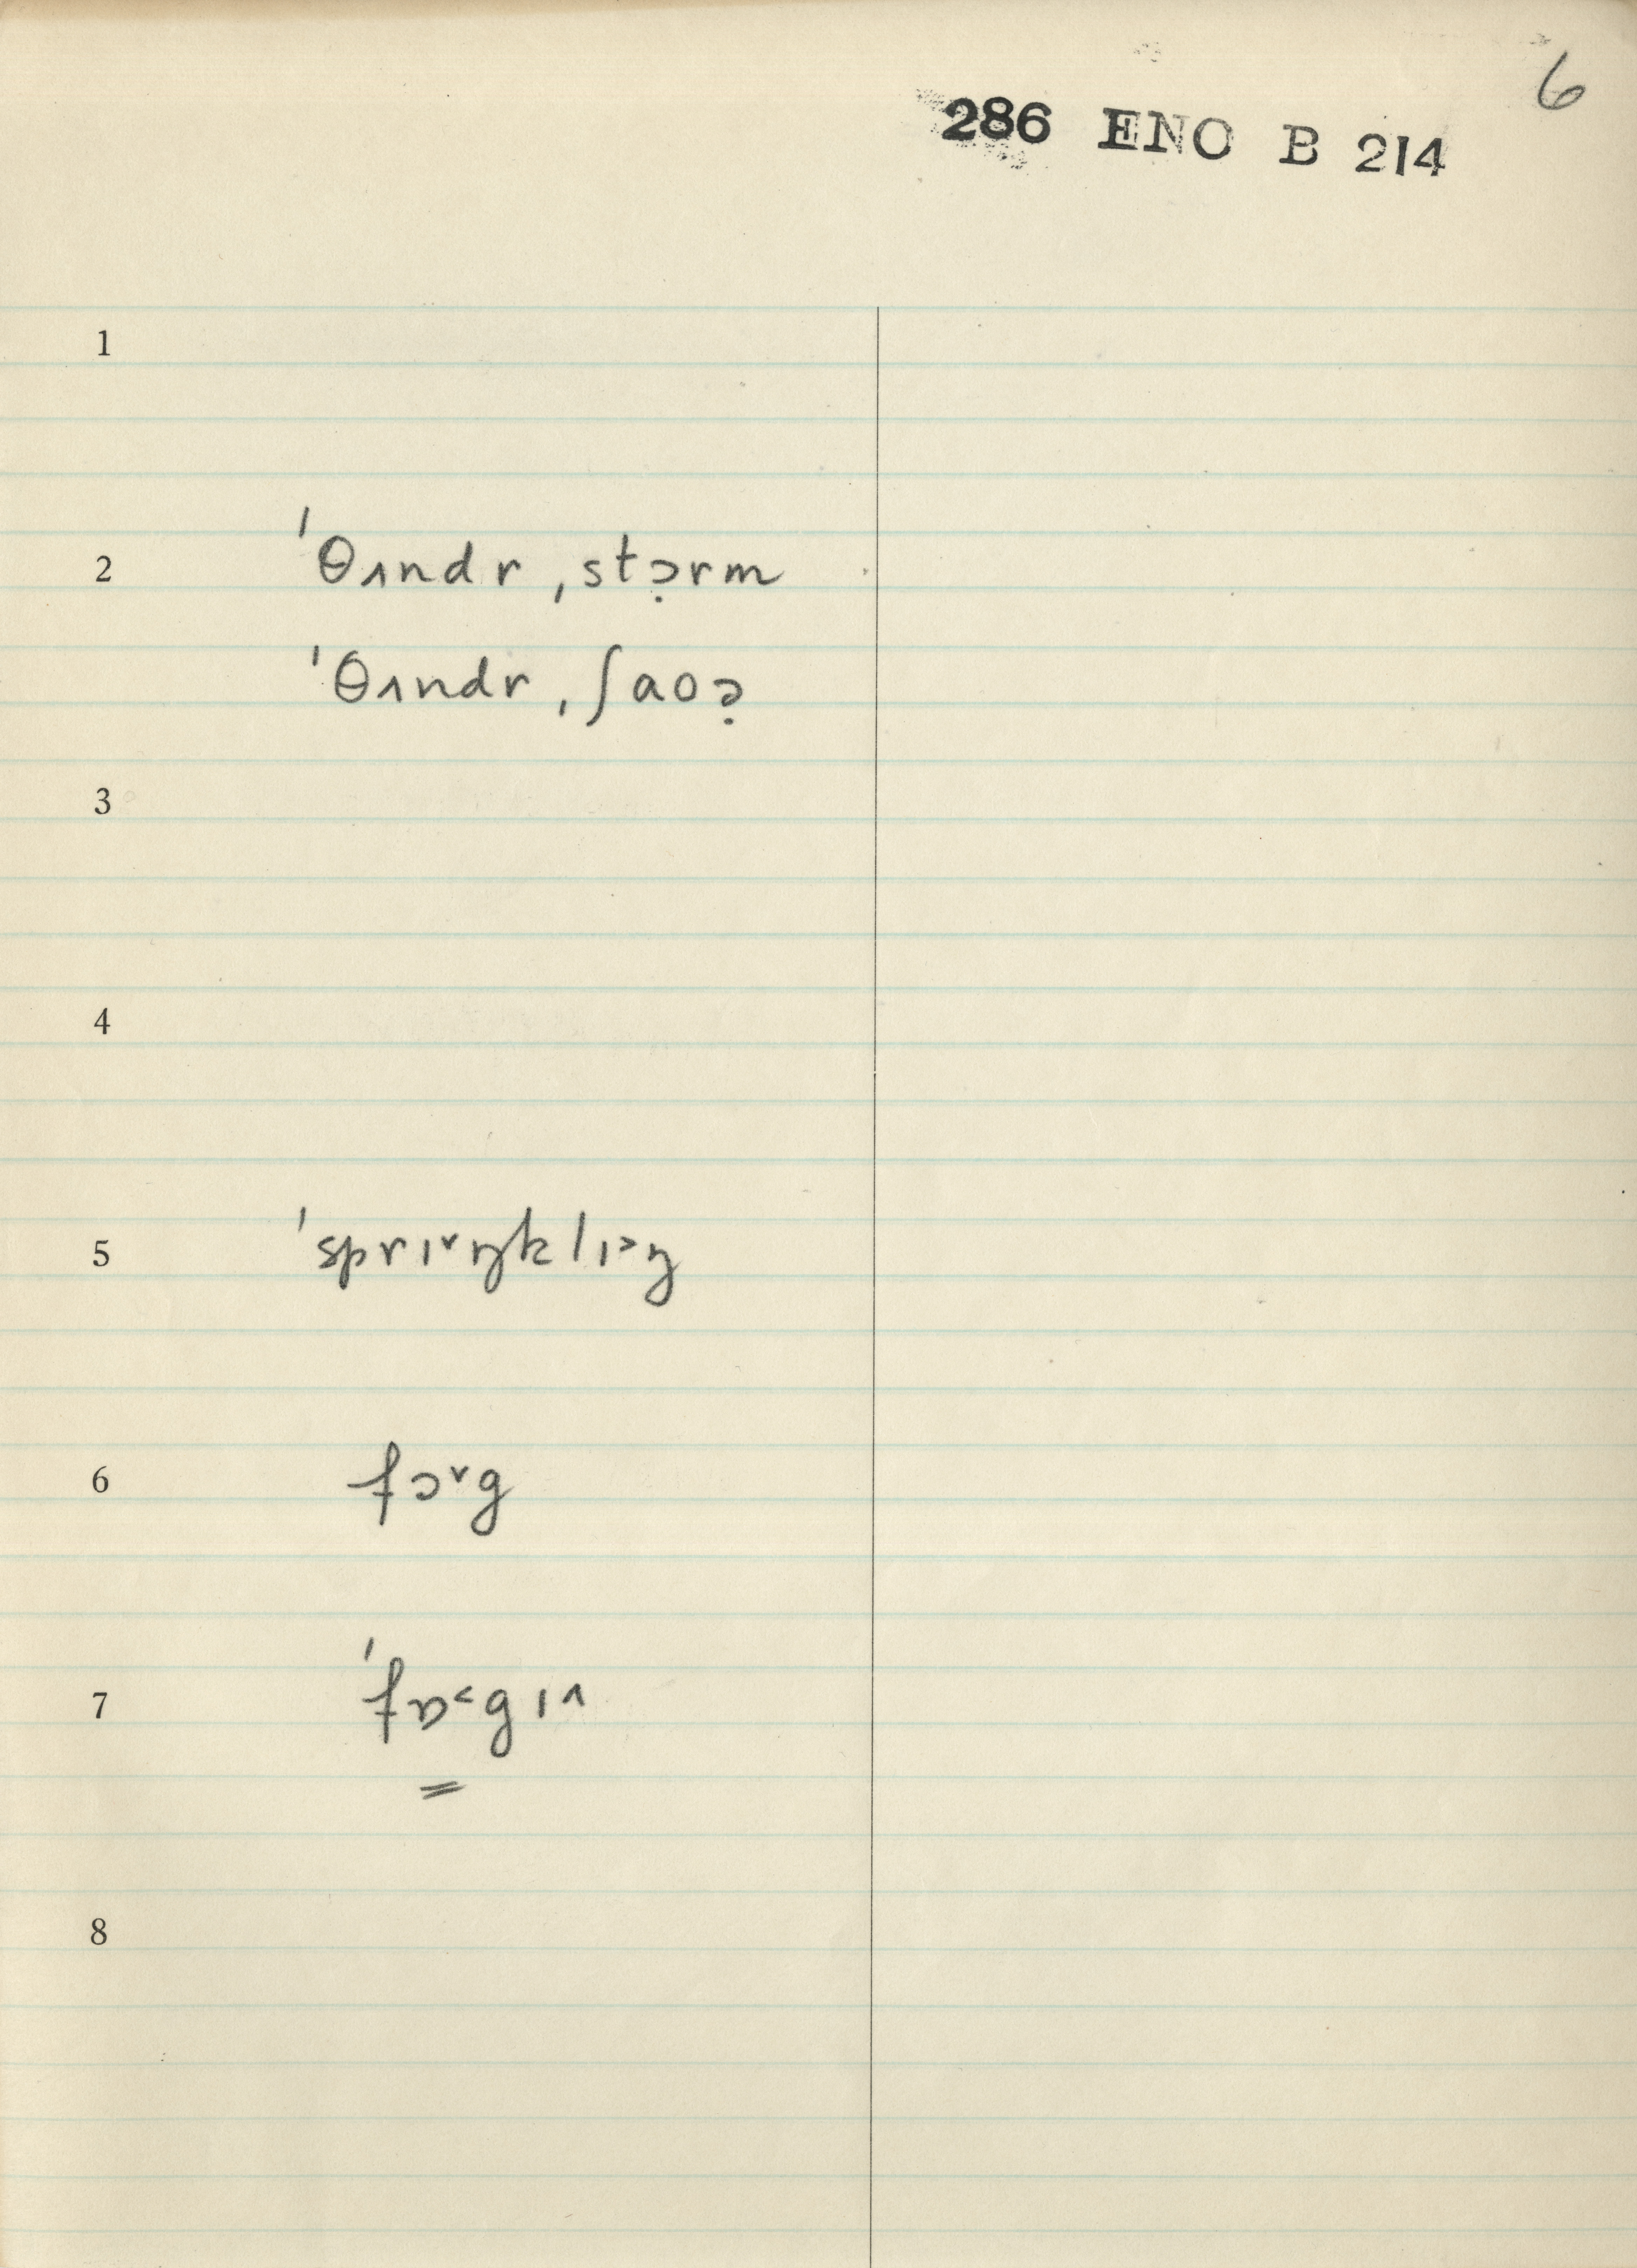 6
286 ENO B 214
1
2 ˈθʌndr ˌstɔ̣rm
ˈθʌndr ˌʃaoə̣
3
4
5 ˈsprɪ˅ŋklɪ˃ŋ
6 fɔ˅g
7 ˈfɒ˂gɪ˄
=
8